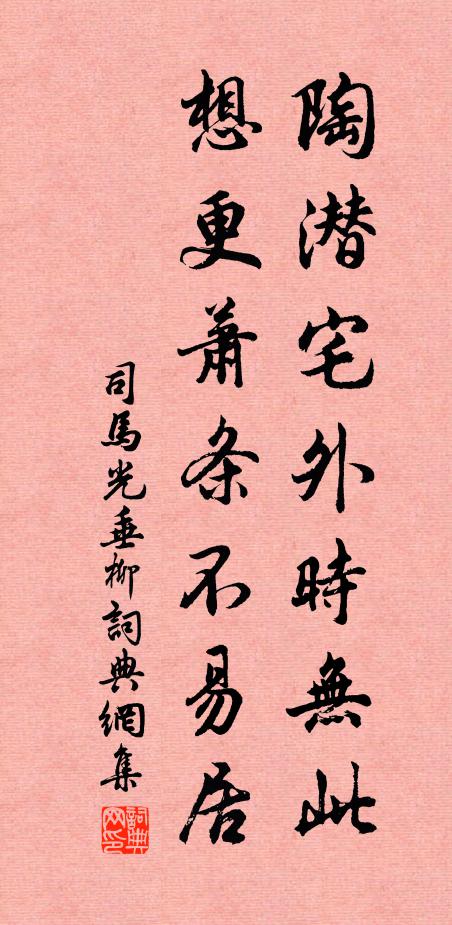 陶潜宅外時無此
想更蕭条不易居
司馬光垂柳詞典網集
詞典網印